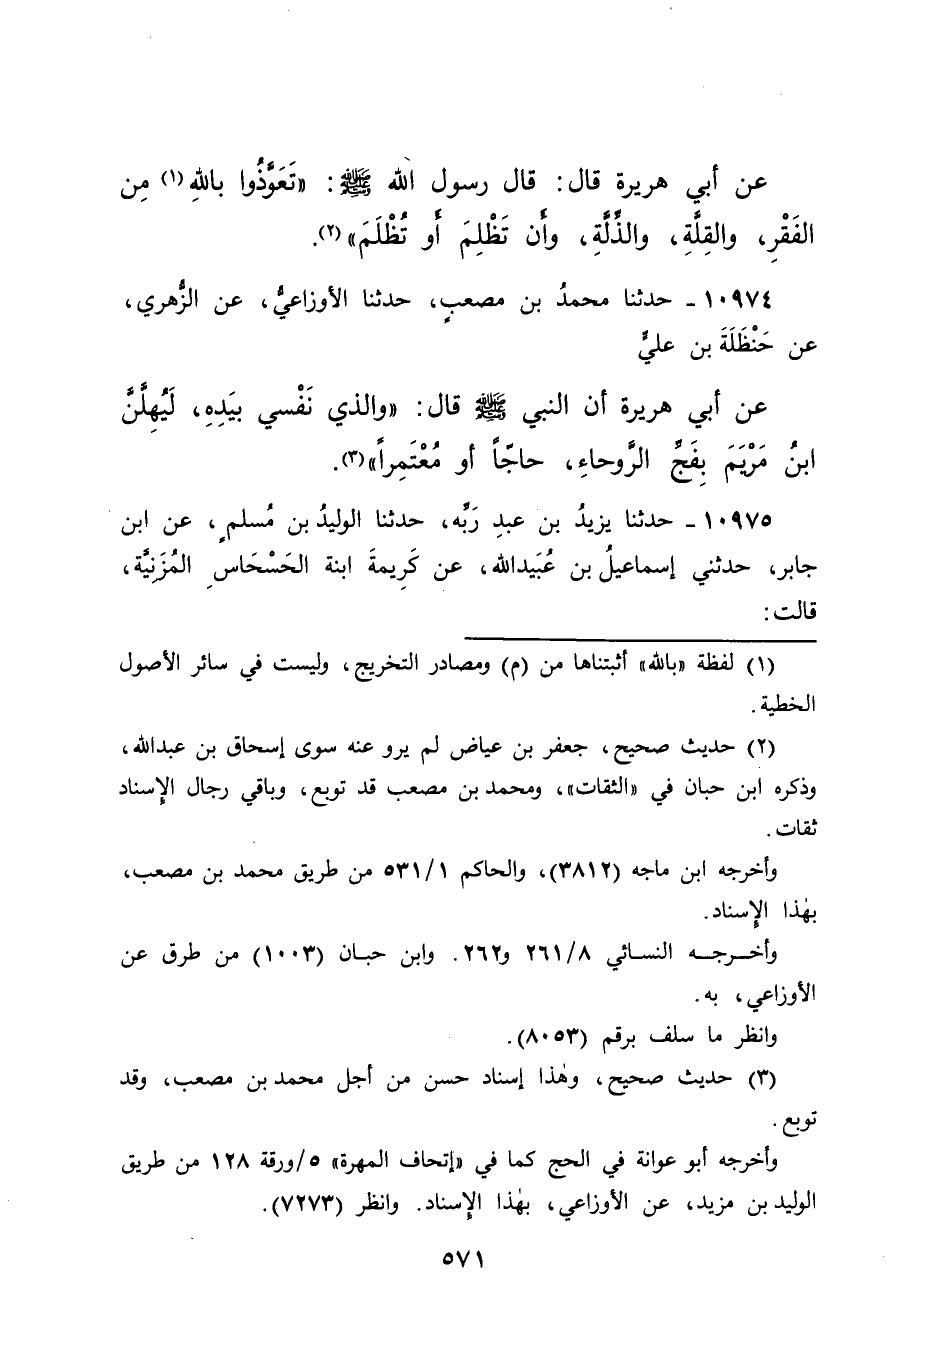 عن أبي هريرة قال: قال رسول الله ﷺ: «تَعَوَّذُوا باللهِ(١) مِن
الفَقْرِ، والقِلَّةِ، والذِّلَّةِ، وأَن تَظْلِمَ أَو تُظْلَمَ»(٢).
١٠٩٧٤ ـ حدثنا محمدُ بن مصعبٍ، حدثنا الأوزاعيُّ، عن الزُّهري،
عن حَنْظَلَةَ بن عليٍّ
عن أبي هريرة أن النبي ﷺ قال: «والذي نَفْسي بيَدِهِ، لَيُهِلَّنَّ
ابنُ مَرْيَمَ بِفَجِّ الرَّوحاءِ، حاجّاً أو مُعْتَمِراً»(٣).
١٠٩٧٥ ـ حدثنا يزيدُ بن عبدِ رَبِّه، حدثنا الوليدُ بن مُسلمٍ، عن ابن
جابر، حدثني إسماعيلُ بن عُبَيدالله، عن كَرِيمةَ ابنة الحَسْحَاسِ المُزَنِيَّة،
قالت:
(١) لفظة «بالله» أثبتناها من (م) ومصادر التخريج، وليست في سائر الأصول
الخطية.
(٢) حديث صحيح، جعفر بن عياض لم يرو عنه سوى إسحاق بن عبدالله،
وذكره ابن حبان في «الثقات»، ومحمد بن مصعب قد توبع، وباقي رجال الإسناد
ثقات.
وأخرجه ابن ماجه (٣٨١٢)، والحاكم ٥٣١/١ من طريق محمد بن مصعب،
بهٰذا الإسناد.
وأخرجه النسائي ٢٦١/٨ و٢٦٢. وابن حبان (١٠٠٣) من طرق عن
الأوزاعي، به.
وانظر ما سلف برقم (٨٠٥٣).
(٣) حديث صحيح، وهٰذا إسناد حسن من أجل محمد بن مصعب، وقد
توبع.
وأخرجه أبو عوانة في الحج كما في «إتحاف المهرة» ٥/ورقة ١٢٨ من طريق
الوليد بن مزيد، عن الأوزاعي، بهٰذا الإسناد. وانظر (٧٢٧٣).
٥٧١